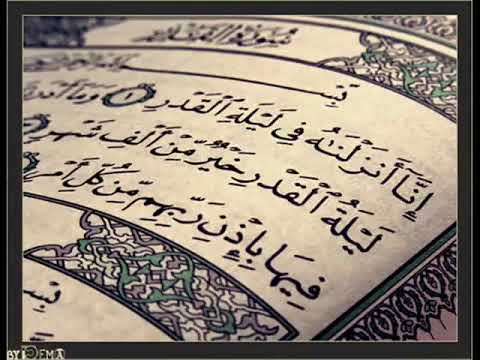 سُورَةُ الْقَدْرِ
بِسْمِ
إِنَّا أَنزَلْنَٰهُ فِى لَيْلَةِ الْقَدْرِ ١ وَمَا
لَيْلَةُ الْقَدْرِ خَيْرٌ مِّنْ أَلْفِ شَهْرٍ
فِيهَا بِإِذْنِ رَبِّهِم مِّن كُلِّ أَمْرٍ
بِسْمِ
BY